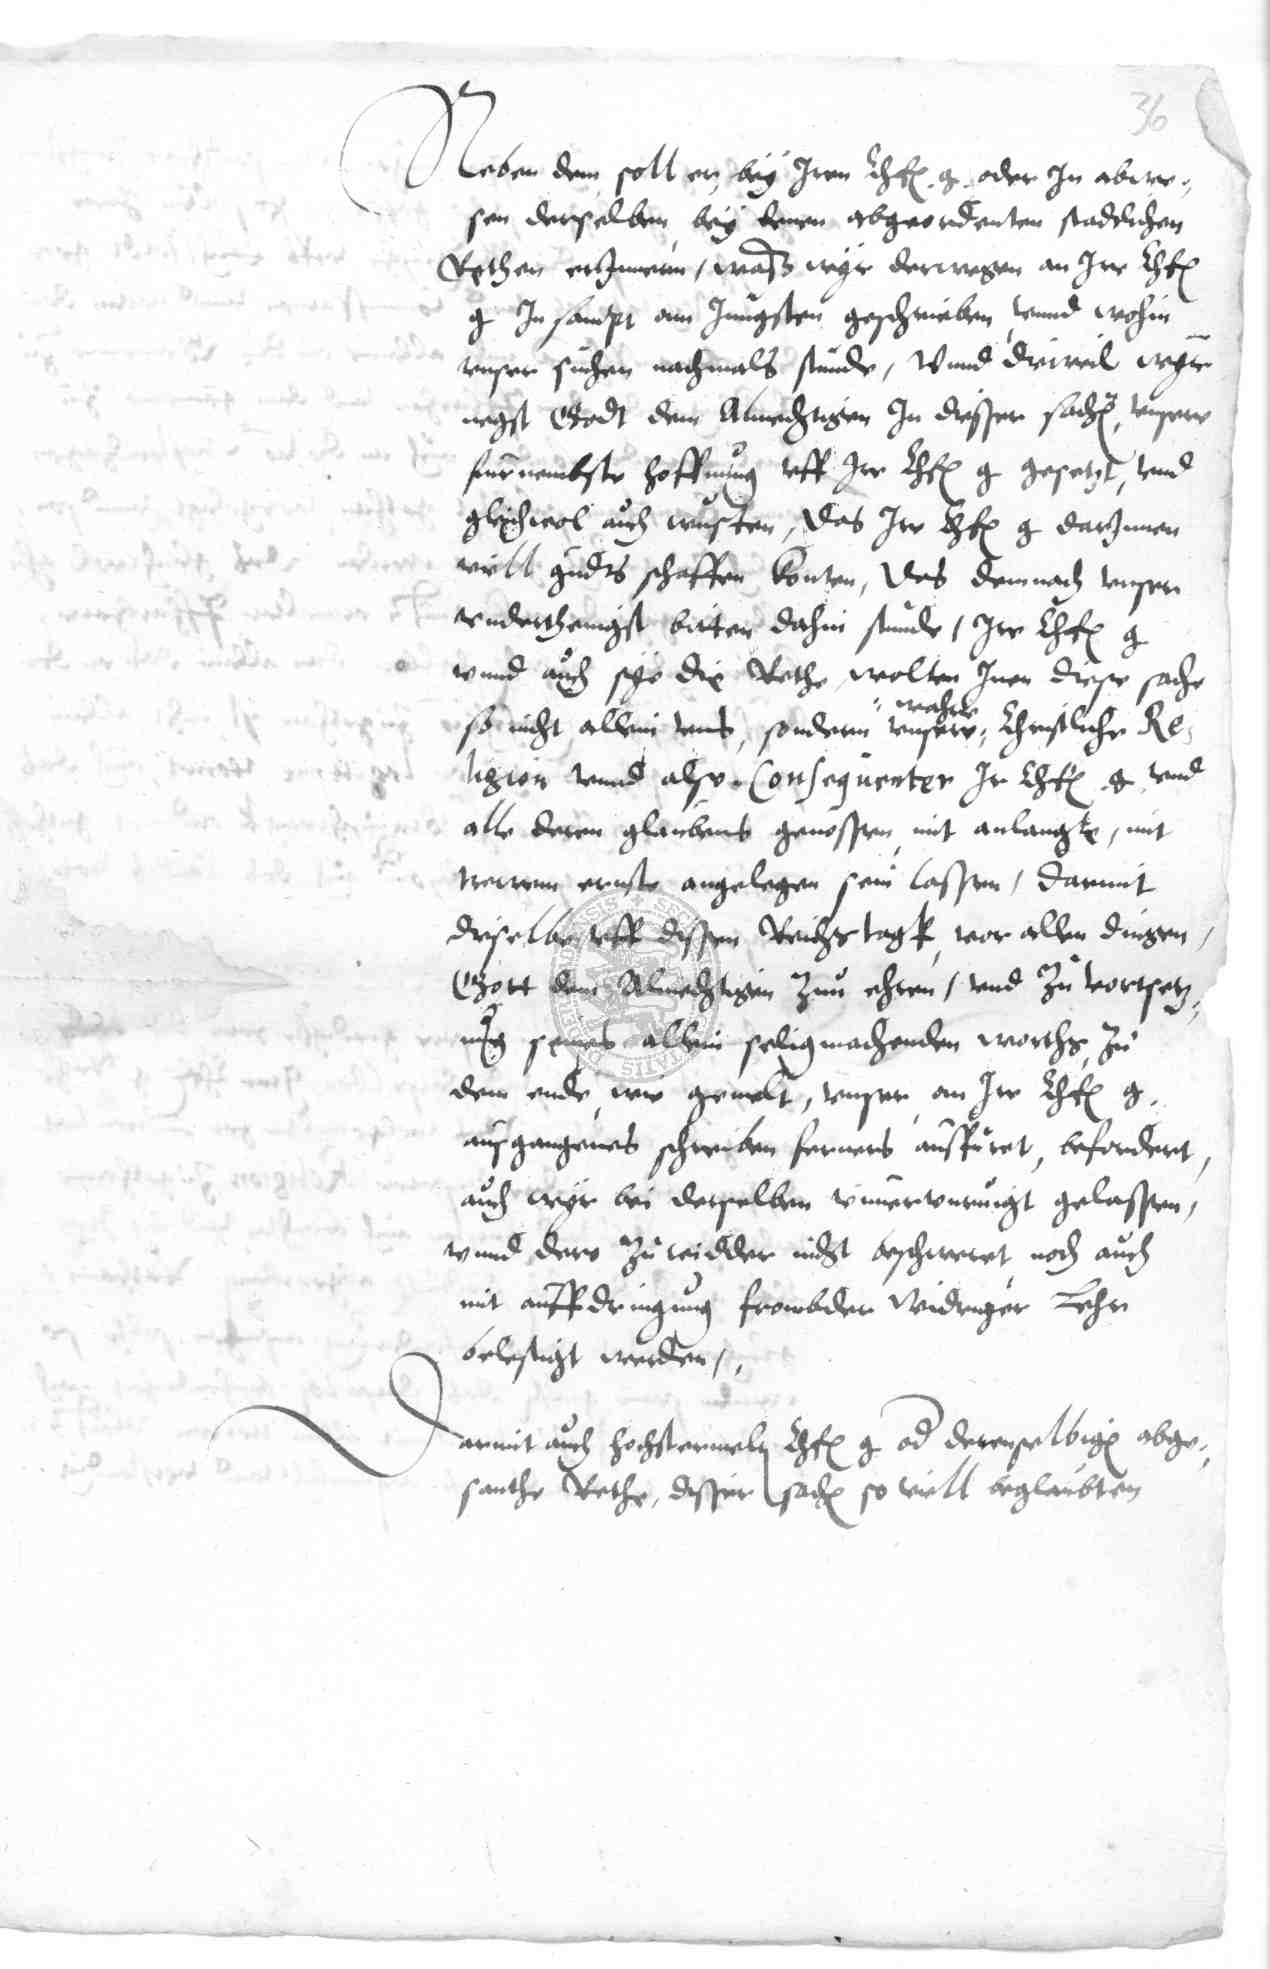 36
Neben dem soll er bey Iren Chf. g. oder In abwe-,
sen derselben bey denen abgeordenten stadtlichen
Rethen erInnern, waß wyr derwegen an Ire Chf
g Insampt am Jungsten geschrieben, vnnd wohin
vnser suchen nachmals stunde, Vnnd dieweil wyr
negst Godt dem Almechtigen In dießer sach, vnsere
furnembste hoffnung vff Ire Chf g gesetzt, vnd
gleichwol auch wusten, das Ire Chf g darInnen
viell gudts schaffen konten, das demnach vnser
vnderthenigst bitten dahin stunde, Ire Chf g
vnnd auch sye die Rethe wolten Inen diese sache
wahre
so nicht allein vns, sondern vnsere, Christliche Re,
ligion vnnd also Consequenter Ir Chf g vnd
alle deren glaubens genossen mit anlangte, mit
trewem ernste angelegen sein lassen, darmit
dieselbe vff dissen Reichstagk, vor allen dingen,
Gott dem Almechtigen Zuu ehren, vnd Zu vortsetz,
ung seines allein seligmachenden worths, Zu
dem ende, wie gemelt, vnser an Ire Chf g.
ausgangenes schreiben ferners ausfuret, befordert,
auch wyr bei derselben vnuervnruigt gelassen,
vnnd dero Zuwidder nicht beschweret noch auch
mit auffdringung frombder widriger Lehr
belestigt werden,,
Darmit auch hochstermelt Chf g od derenselbige abge-,
santhe Rethe, disser sach so viell beglaubten